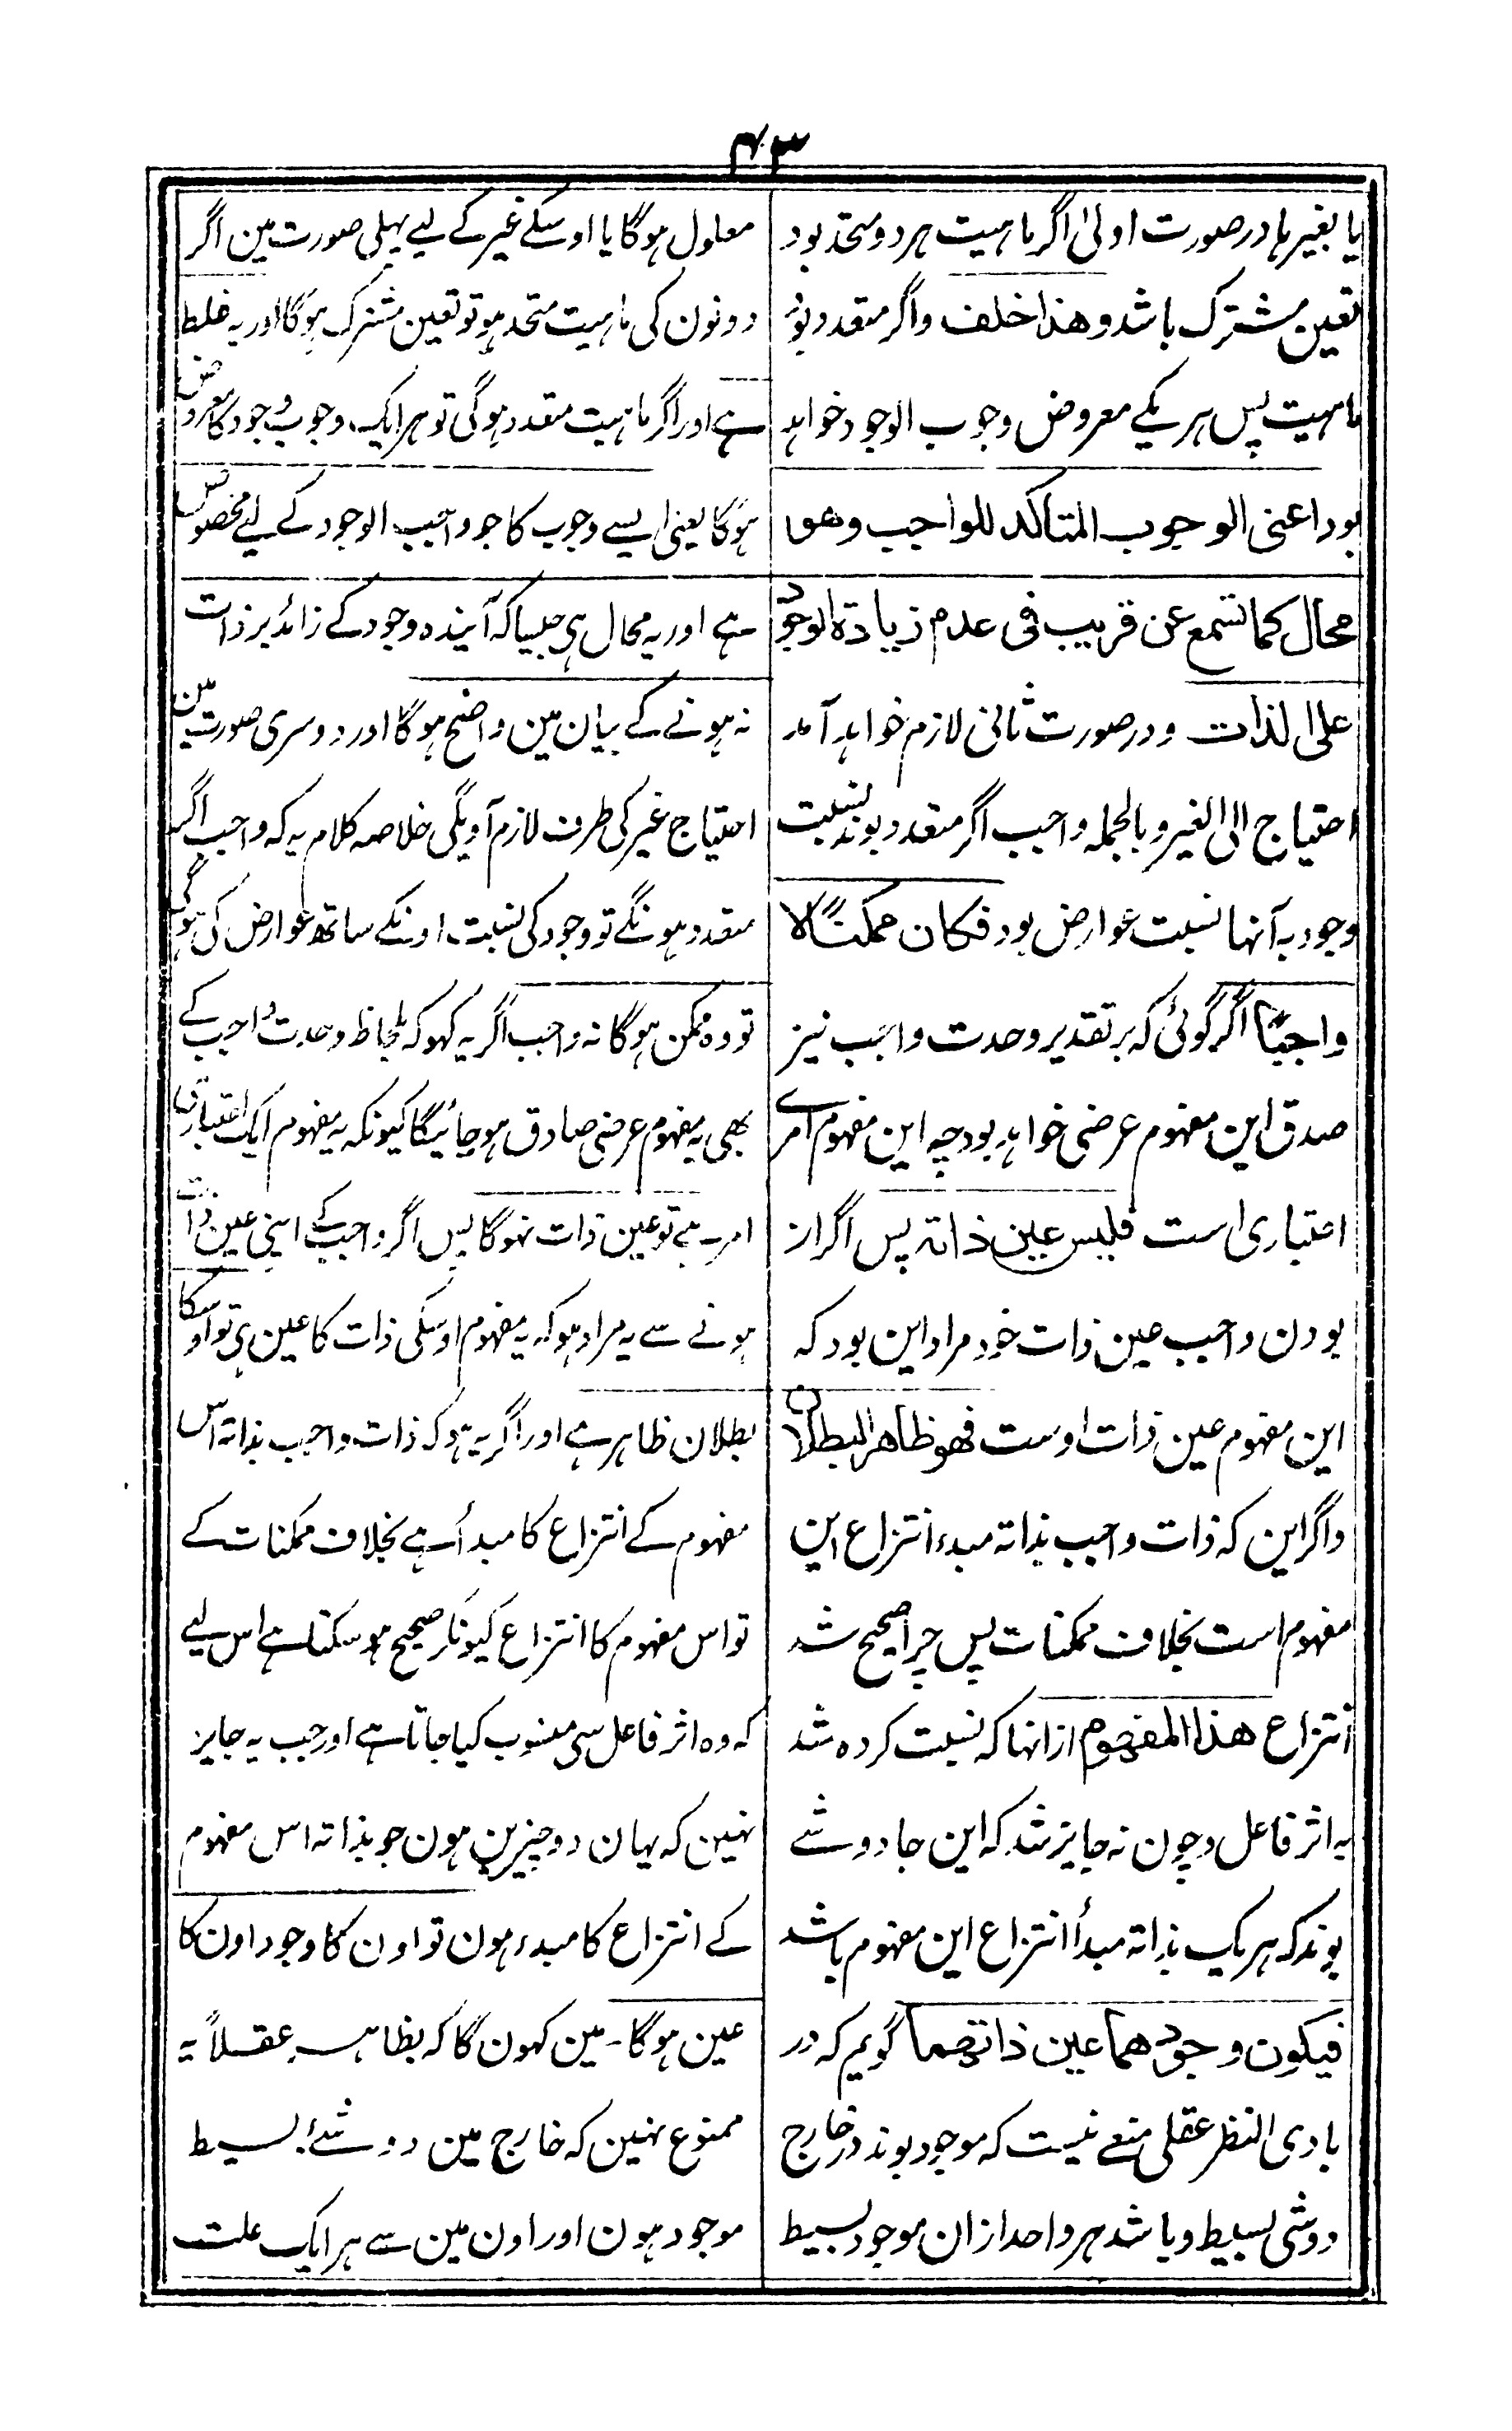 ۴۳
یا بغیر ہا در صورت اولیٰ اگر ماہیت ہر دو متحد بود
تعین مشترک باشد وهذا خلف واگر متعدد بود
ماہیت پس ہر یکے معروض وجوب الوجود خواہد
بود اعنی الوجوب المتاکد للواجب وهو
محال کما تسمع عن قریب فی عدم زیادة الوجود
علی الذات ودر صورت ثانی لازم خواہد آمد
احتیاج الی الغیر و بالجملہ واجب اگر متعدد بوند نسبت
وجود بہ آنہا نسبت عوارض بود فکان ممکناً لا
واجباً اگر گوئی کہ بر تقدیر وحدت واجب نیز
صدق این مفہوم عرضی خواہد بود چہ این مفہوم امرے
اعتباری است فلیس عین ذاتہ پس اگر از
بودن واجب عین ذات خود مراد این بود کہ
این مفہوم عین ذات اوست فهو ظاهر البطلان
واگر این کہ ذات واجب بذاتہ مبدء انتزاع این
مفہوم است بخلاف ممکنات پس چرا صحیح شد
انتزاع هذا المفهوم از انہا کہ نسبت کردہ شد
بہ اثر فاعل وچون نہ جایز شد کہ این جا دو شے
بوند کہ ہر یک بذاتہ مبدأ انتزاع این مفہوم باشد
فیکون وجودهما عین ذاتهما گویم کہ در
بادی النظر عقلی منعے نیست کہ موجود بوند در خارج
دو شی بسیط و باشد ہر واحد ازان موجود بسیط
معلول ہوگا یا اوسکے غیر کے لیے پہلی صورت مین اگر
دونون کی ماہیت متحد ہو تو تعین مشترک ہوگا اور یہ غلط
ہے اور اگر ماہیت متعدد ہوگی تو ہر ایک وجوب وجود کا معروض
ہوگا یعنی ایسے وجوب کا جو واجب الوجود کے لیے مخصوص
ہے اور یہ محال ہی جیسا کہ آیندہ وجود کے زائد بر ذات
نہ ہونے کے بیان مین واضح ہوگا اور دوسری صورت مین
احتیاج غیر کی طرف لازم آویگی خلاصہ کلام یہ کہ واجب اگر
متعدد ہونگے تو وجود کی نسبت اونکے ساتھ عوارض کی ہوگی
تو وہ ممکن ہوگا نہ واجب اگر یہ کہو کہ بلحاظ وحدت واجب کے
بھی یہ مفہوم عرضی صادق ہو جائیگا کیونکہ یہ مفہوم ایک اعتباری
امر ہے تو عین ذات نہوگا پس اگر واجب کے اپنی عین ذات
ہونے سے یہ مراد ہو کہ یہ مفہوم اوسکی ذات کا عین ہی تو اوسکا
بطلان ظاہر ہے اور اگر یہ ہو کہ ذات واجب بذاتہ اس
مفہوم کے انتزاع کا مبدأ ہے بخلاف ممکنات کے
تو اس مفہوم کا انتزاع کیونکر صحیح ہو سکتا ہے اس لیے
کہ وہ اثر فاعل سی منسوب کیا جاتا ہے اور جب یہ جایز
نہین کہ یہان دو چیزین ہون جو بذاتہ اس مفہوم
کے انتزاع کا مبدء ہون تو اون کا وجود اون کا
عین ہوگا۔ مین کہون گا کہ بظاہر عقلاً یہ
ممنوع نہین کہ خارج مین دو شئے بسیط
موجود ہون اور اون مین سے ہر ایک علت